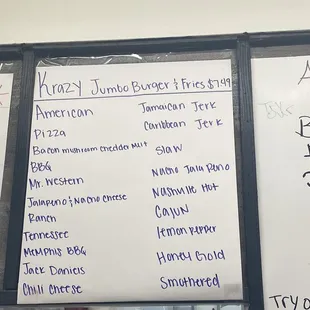 Krazy Jumbo Burger & Fries $7.49
American
Pizza
Bacon mushroom cheddar Mlt
BBQ
Mr. Western
Jalapeno & Nacho cheese
Ranch
Tennessee
Memphis BBQ
Jack Daniels
Chili Cheese
Jamaican Jerk
Caribbean Jerk
Slaw
Nacho Jalapeno
Nashville Hot
Cajun
Lemon Pepper
Honey Gold
Smothered
Try